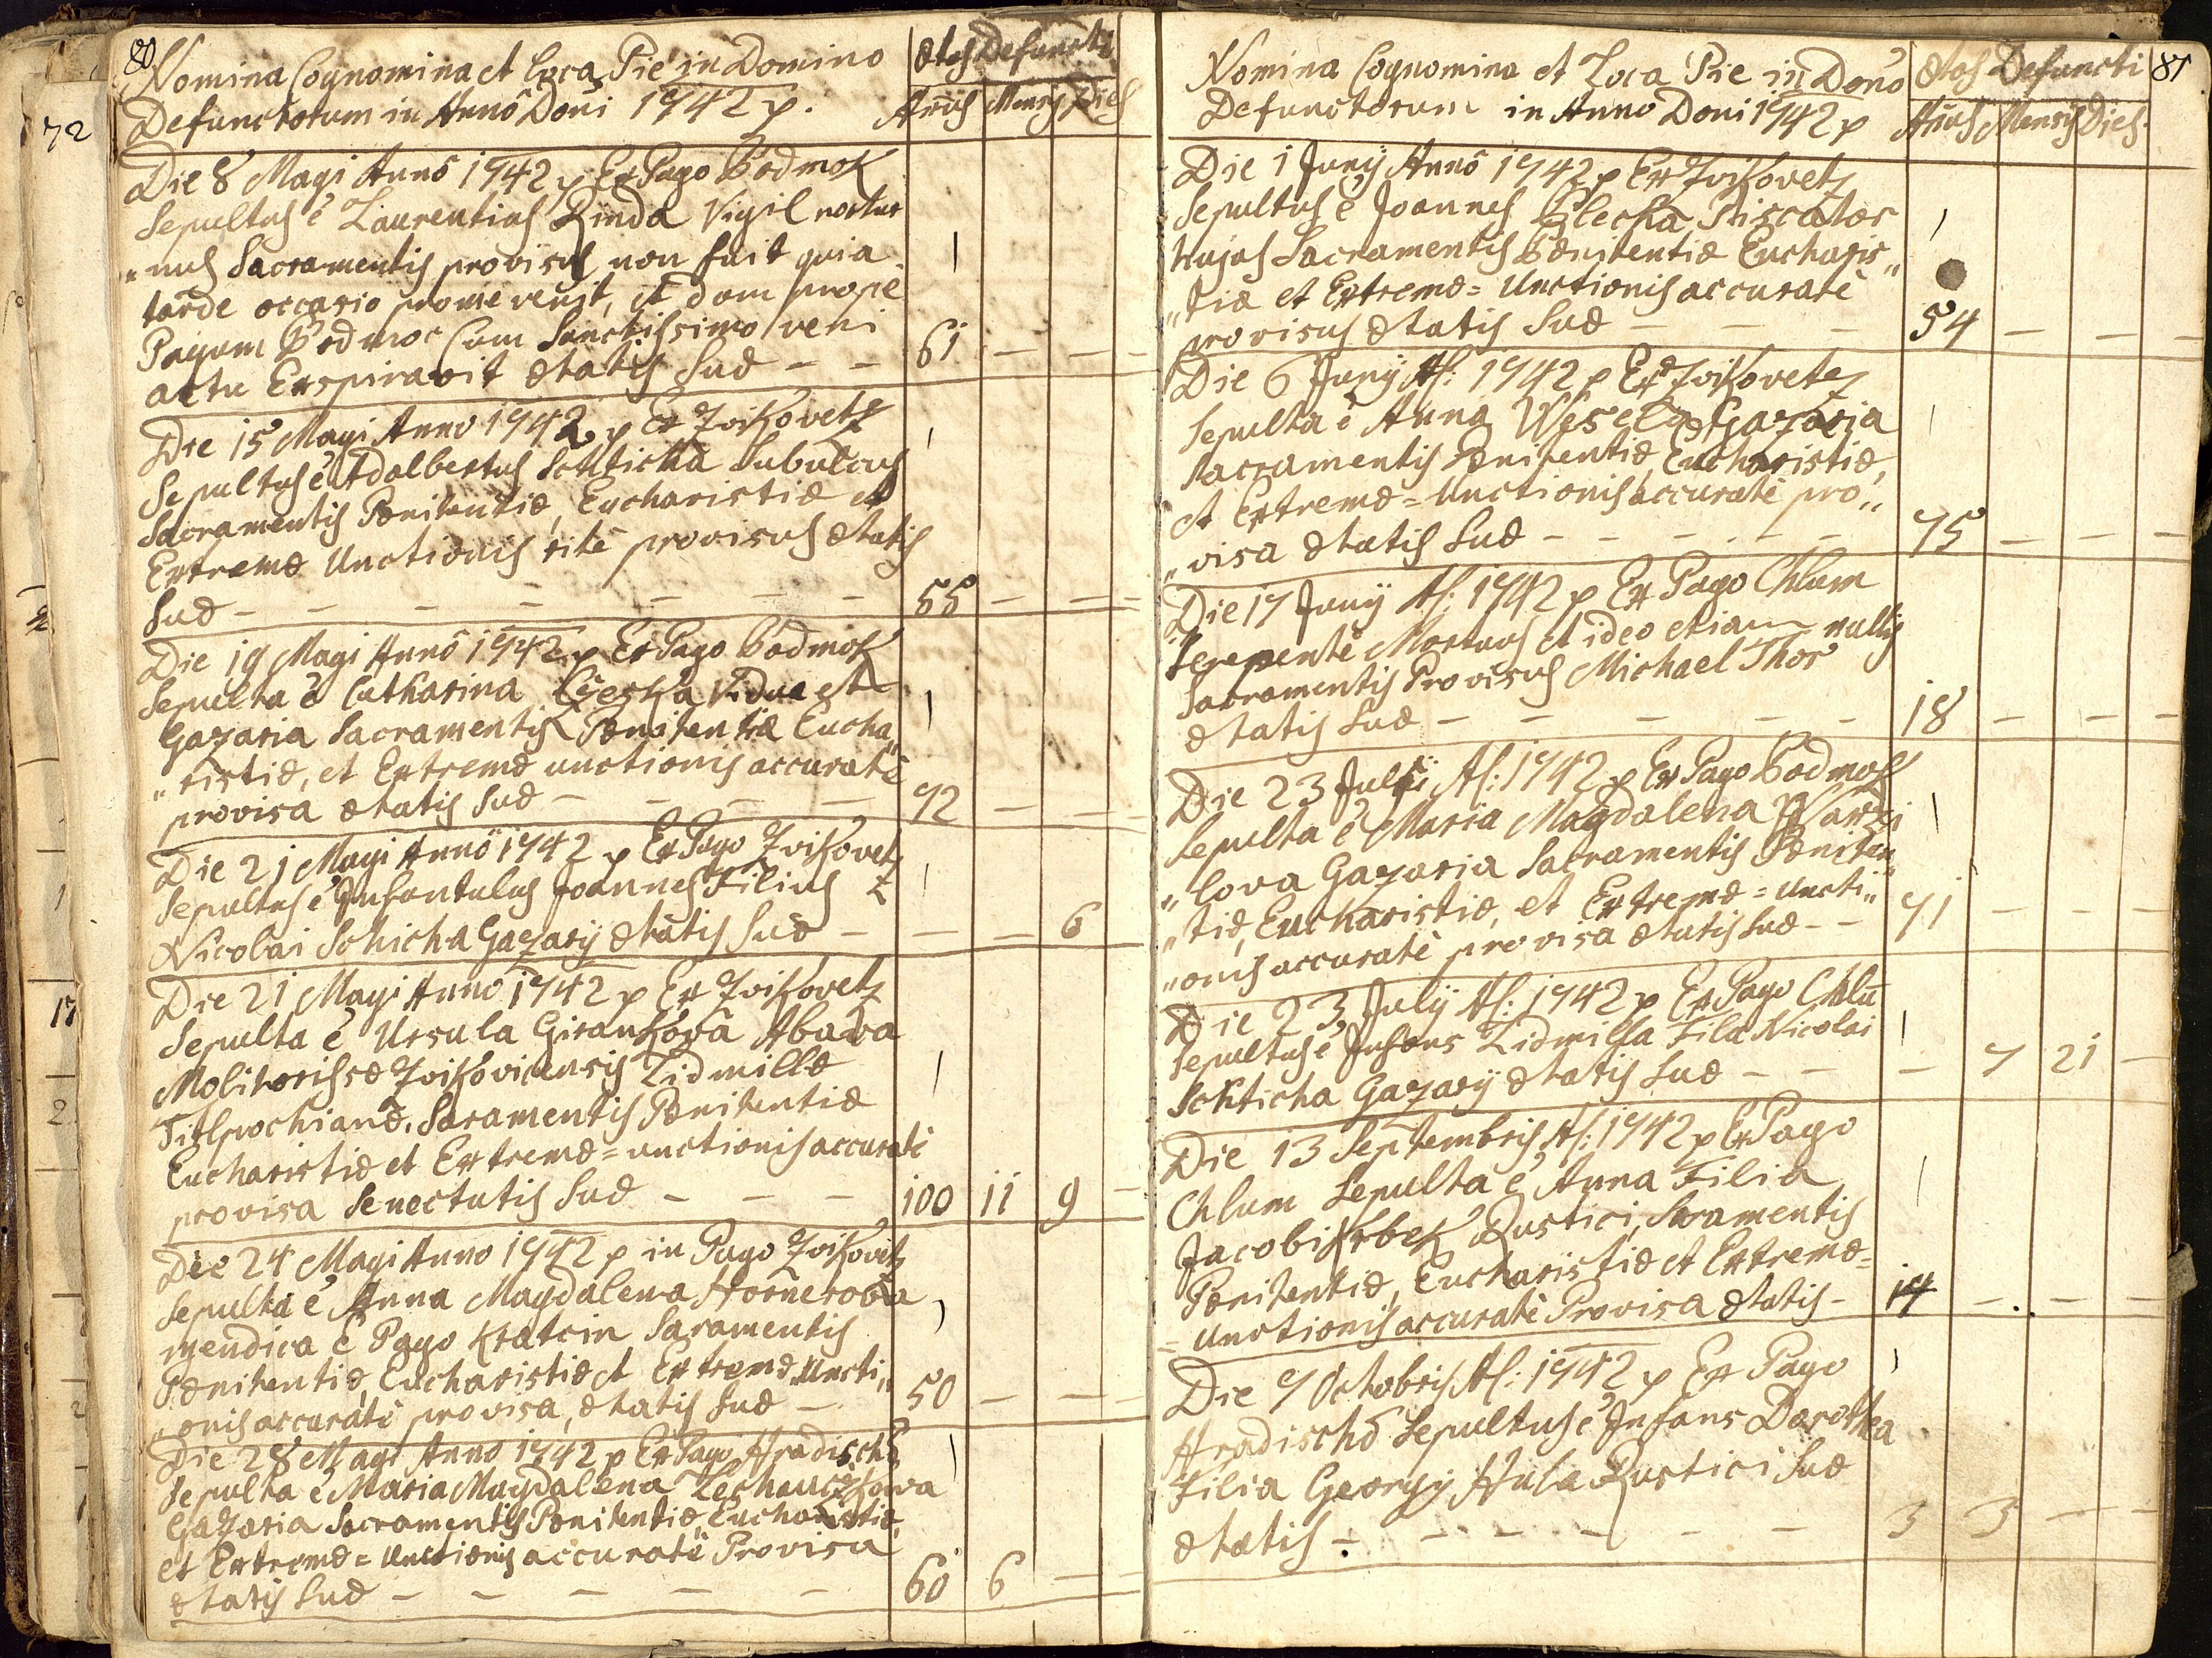 80
Nomina Cognomina et Loca Pie in Domino
Defunctorum in Anno Doni 1742 p.
Ætas Defuncti
Añus Mensis Dies
72
Die 8 Magi Anno 1742 p Ex Pago Podmok
Sepultus e Laurentius Rinda Vigil noctur
„nus Sacramentis provisus non fuit quia
tarde occasio pro me venit, et dum prope
Pagum Podmoc Cum Sanctissimo veni
actu Exspiravit ætatis Suæ - - 61 - - -
Die 15 Magi Anno 1742 p Ex Zvikovetz
Sepultus e Adalbertus Schticha Subulcus
Sacramentis Pænitentiæ, Eucharistiæ et
Extremæ Unctionis rite provisus ætatis
Suæ - - - - - - 55 - - -
Die 19 Magi Anno 1742 p Ex Pago Podmok
Sepulta e Catharina Vidua et
Gazaria Sacramentis Pænitentiæ Eucha„
„ristiæ, et Extremæ unctionis accurate
provisa ætatis Suæ - - - - 72 - - -
Die 21 Magi Anno 1742 p Ex Pago Zvikovetz
Sepultus e Infantulus Joannes Filius
Nicolai Schticha Gazarÿ ætatis Suæ - - - 6
Die 21 Magi Anno 1742 p Ex Zvikovetz
Sepulta e Ursula Girankova
Molitorissæ Zvikovicensis Lidmillæ
Sacramentis Pænitentiæ
Eucharistiæ et Extremæ = unctionis accurate
provisa Senectutis Suæ - - - 100 11 9 -
Die 24 Magi Anno 1742 p in Pago Zvikovetz
Sepulta e Anna Magdalena Hornerova
mendica e Pago Kratcin Sacramentis
Pænitentiæ, Eucharistiæ et Extremæ Uncti„
„onis accurate provisa, ætatis Suæ - 50 - - -
Die 28 Magi Anno 1742 p Ex Pago Hradischt
Sepulta e Maria Magdalena
Gazaria Sacramentis Pænitentiæ, Eucharistiæ,
et Extremæ = Unctionis accurate Provisa
ætatis Suæ - - - - - 60 6 - -
81
Nomina Cognomina et Loca Pie in Dono
Defunctorum in Anno Doni 1742 p
Ætas Defuncti
Añus Mensis Dies
Die 1 Junÿ Anno 1742 p Ex Zvikovetz
Sepultus e Joannes Piscator
hujus Sacramentis Pænitentiæ Eucharis„
„tiæ et Extremæ = Unctionis accurate
provisus ætatis Suæ - - - 54 - - -
Die 6 Junÿ A: 1742 p Ex Zvikovetz
Sepulta e Anna Wesela Gazaria
Sacramentis Pænitentiæ, Eucharistiæ,
et Extremæ = Unctionis accurate pro„
„visa ætatis Suæ - - - - - 75 - - -
Die 17 Junÿ A: 1742 p Ex Pago Chlum
Repente Mortuus et ideo etiam nullis
Sacramentis Provisus Michael Thor
ætatis Suæ - - - - - 18 - - -
Die 23 A: 1742 p Ex Pago Podmok
Sepulta e Maria Magdalena
„lova Gazaria Sacramentis Pæniten„
„tiæ, Eucharistiæ, et Extremæ = Uncti„
„onis accurate provisa ætatis Suæ - - 71 - - -
Die 23 Julÿ A: 1742 p Ex Pago Chlū
Sepultus e Infans Lidmilla Filia Nicolai
Schticha Gazarÿ ætatis Suæ - - - 7 21 -
Die 13 Septembris A: 1742 p Ex Pago
Chlum Sepulta e Anna Filia
Jacobi Rustici, Sacramentis
Pænitentiæ, Eucharistiæ et Extremæ =
= Unctionis accurate Provisa ætatis - 14 - - -
Die 7 Octobris A: 1742 p Ex Pago
Hradischo Sepultus e Infans Dorothea
Filia Georgÿ Hula Rustici Suæ
ætatis - - - - - - 3 3 - -